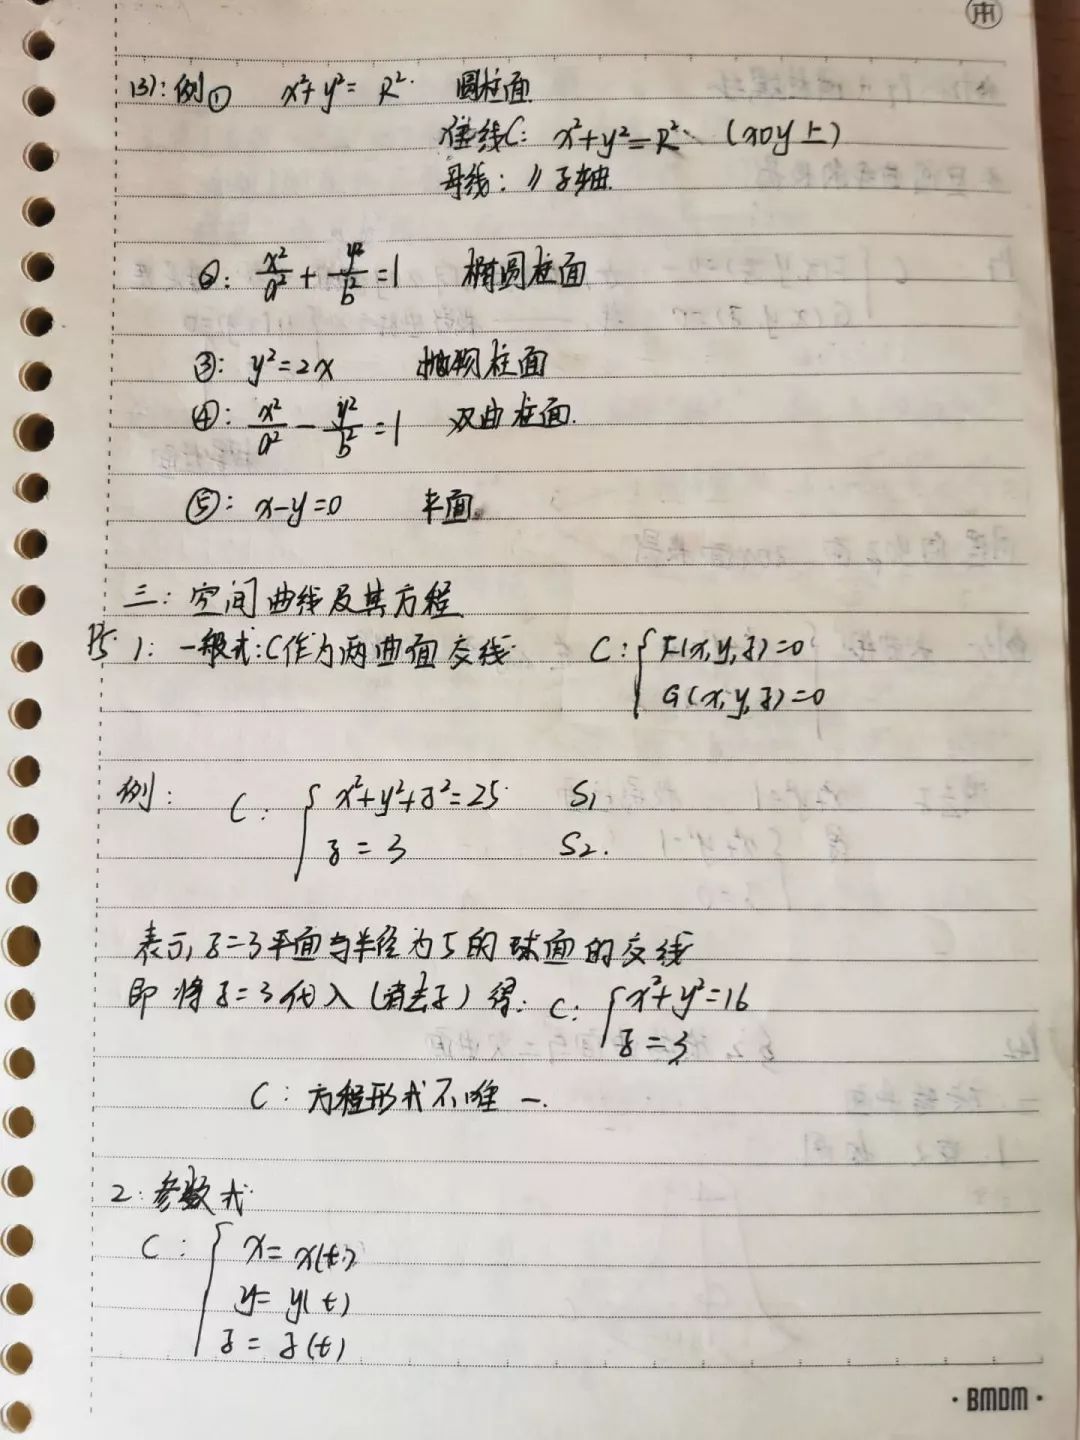 (3): 例① x²+y²=R². 圆柱面
准线C: x²+y²=R² (xoy上)
母线: // z轴.
②: x²/a² + y²/b² = 1 椭圆柱面
③: y²=2x 抛物柱面
④: x²/a² - y²/b² = 1 双曲柱面.
⑤: x-y=0 平面.
三: 空间曲线及其方程
P5. 1: 一般式: C作为两曲面交线. C: { F(x,y,z)=0
G(x,y,z)=0
例: C: { x²+y²+z²=25 S1
z=3 S2.
表示z=3平面与半径为5的球面的交线
即将z=3代入(消去z)得: C: { x²+y²=16
z=3
C: 方程形式不唯一.
2: 参数式
C: { x=x(t)
y=y(t)
z=z(t)
·BMDM·